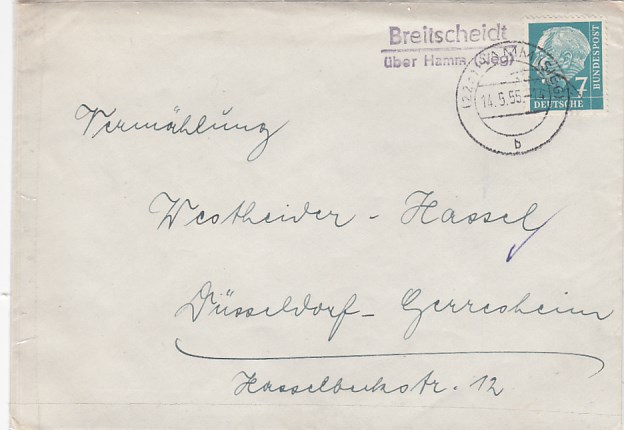 Breitscheidt
über Hamm (Sieg)
HAMM (SIEG)
14.5.55.-14
b
7
DEUTSCHE
BUNDESPOST
Vermählung
Westheider - Hassel
Düsseldorf - Gerresheim
Hasselbeckstr. 12